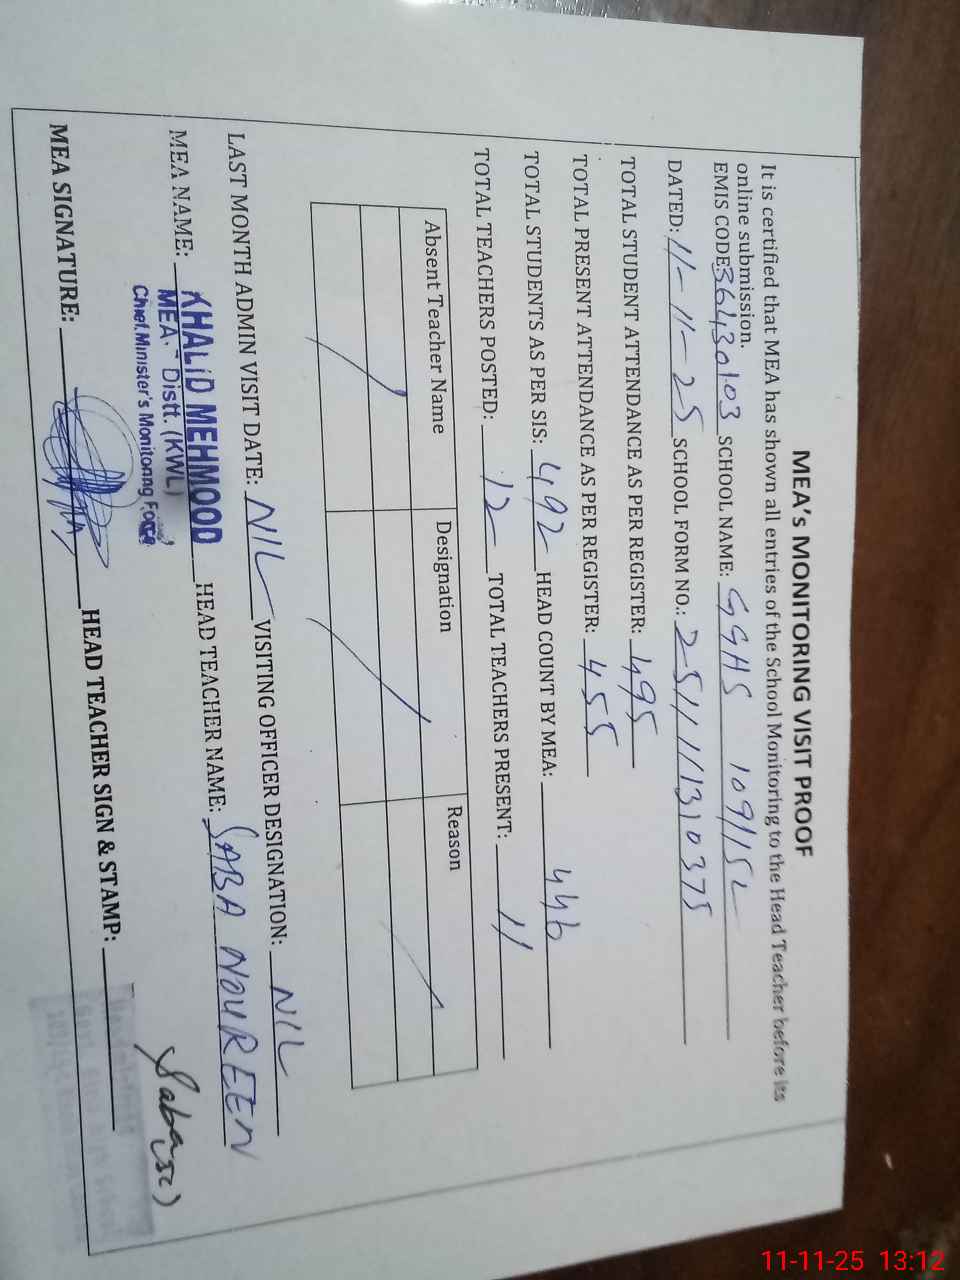 MEA's MONITORING VISIT PROOF
It is certified that MEA has shown all entries of the School Monitoring to the Head Teacher before its
online submission.
EMIS CODE 36430103 SCHOOL NAME: GGHS 109/15L
DATED: 11-11-25 SCHOOL FORM NO.: 25/11/1310375
TOTAL STUDENT ATTENDANCE AS PER REGISTER: 495
TOTAL PRESENT ATTENDANCE AS PER REGISTER: 455
TOTAL STUDENTS AS PER SIS: 492 HEAD COUNT BY MEA: 446
TOTAL TEACHERS POSTED: 12 TOTAL TEACHERS PRESENT: 11
Absent Teacher Name Designation Reason
LAST MONTH ADMIN VISIT DATE: NIL VISITING OFFICER DESIGNATION: NIL
MEA NAME: KHALID MEHMOOD HEAD TEACHER NAME: SABA NOUREEN
MEA. - Distt. (KWL)
Chief Minister's Monitoring Force
MEA SIGNATURE: HEAD TEACHER SIGN & STAMP:
11-11-25 13:12